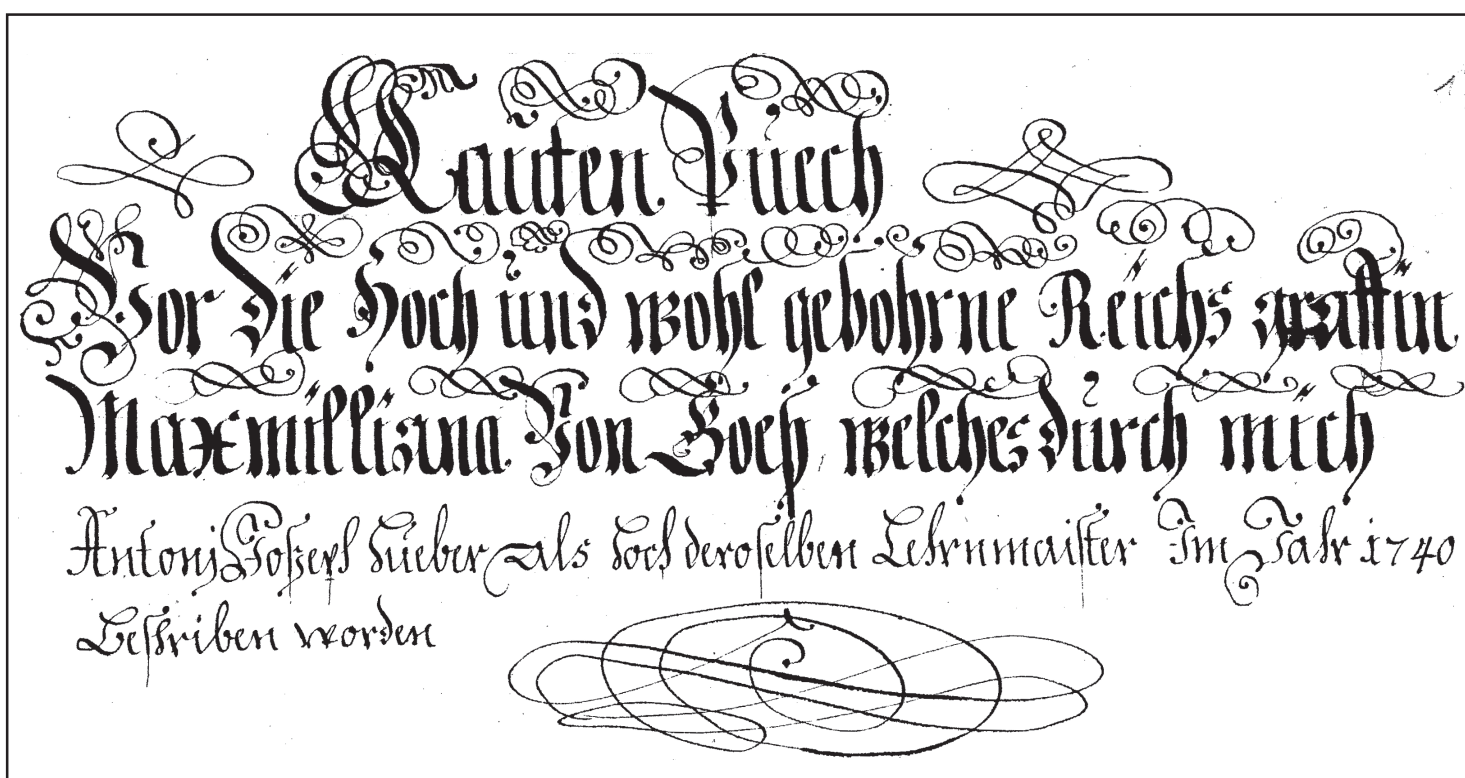 1
Lauten Puech
Vor die Hoch und wohl gebohrne Reichs graffin
Maxmilliana Von Goeß welches durch mich
Antonj Joßeph Hueber als hoch deroselben Lehrnmaister Im Jahr 1740
Beschriben worden